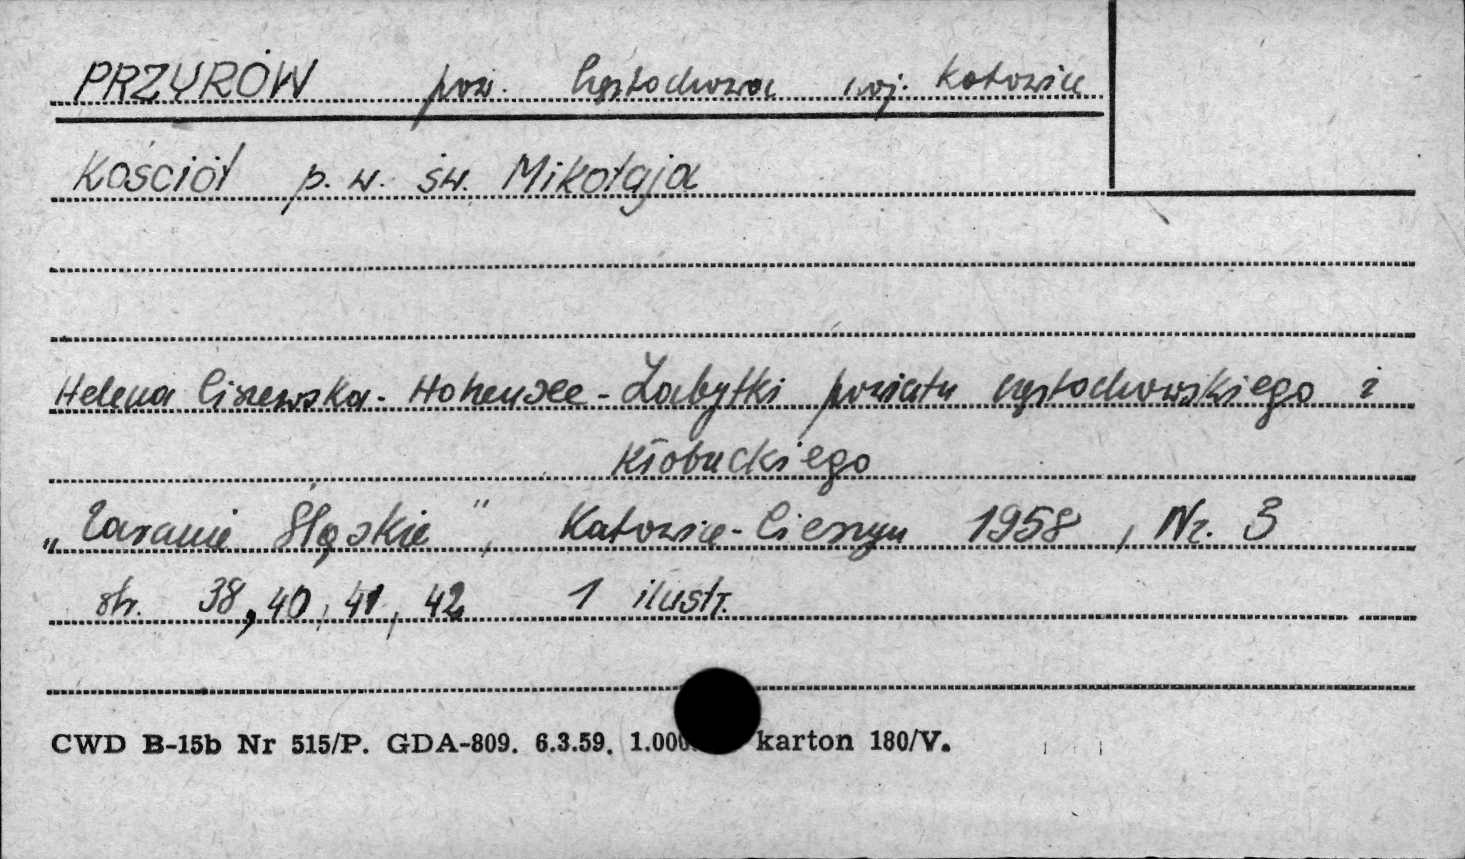 PRZYRÓW pow. Częstochowa woj. Katowice
Kościół p. w. św. Mikołaja
Helena Ciszewska - Hohensee - Zabytki powiatu częstochowskiego i
Kłobuckiego
„Zaranie Śląskie", Katowice - Cieszyn 1958, Nr. 3
str. 38, 40, 41, 42 1 ilustr.
CWD B-15b Nr 515/P. GDA-809. 6.3.59. 1.000 karton 180/V.